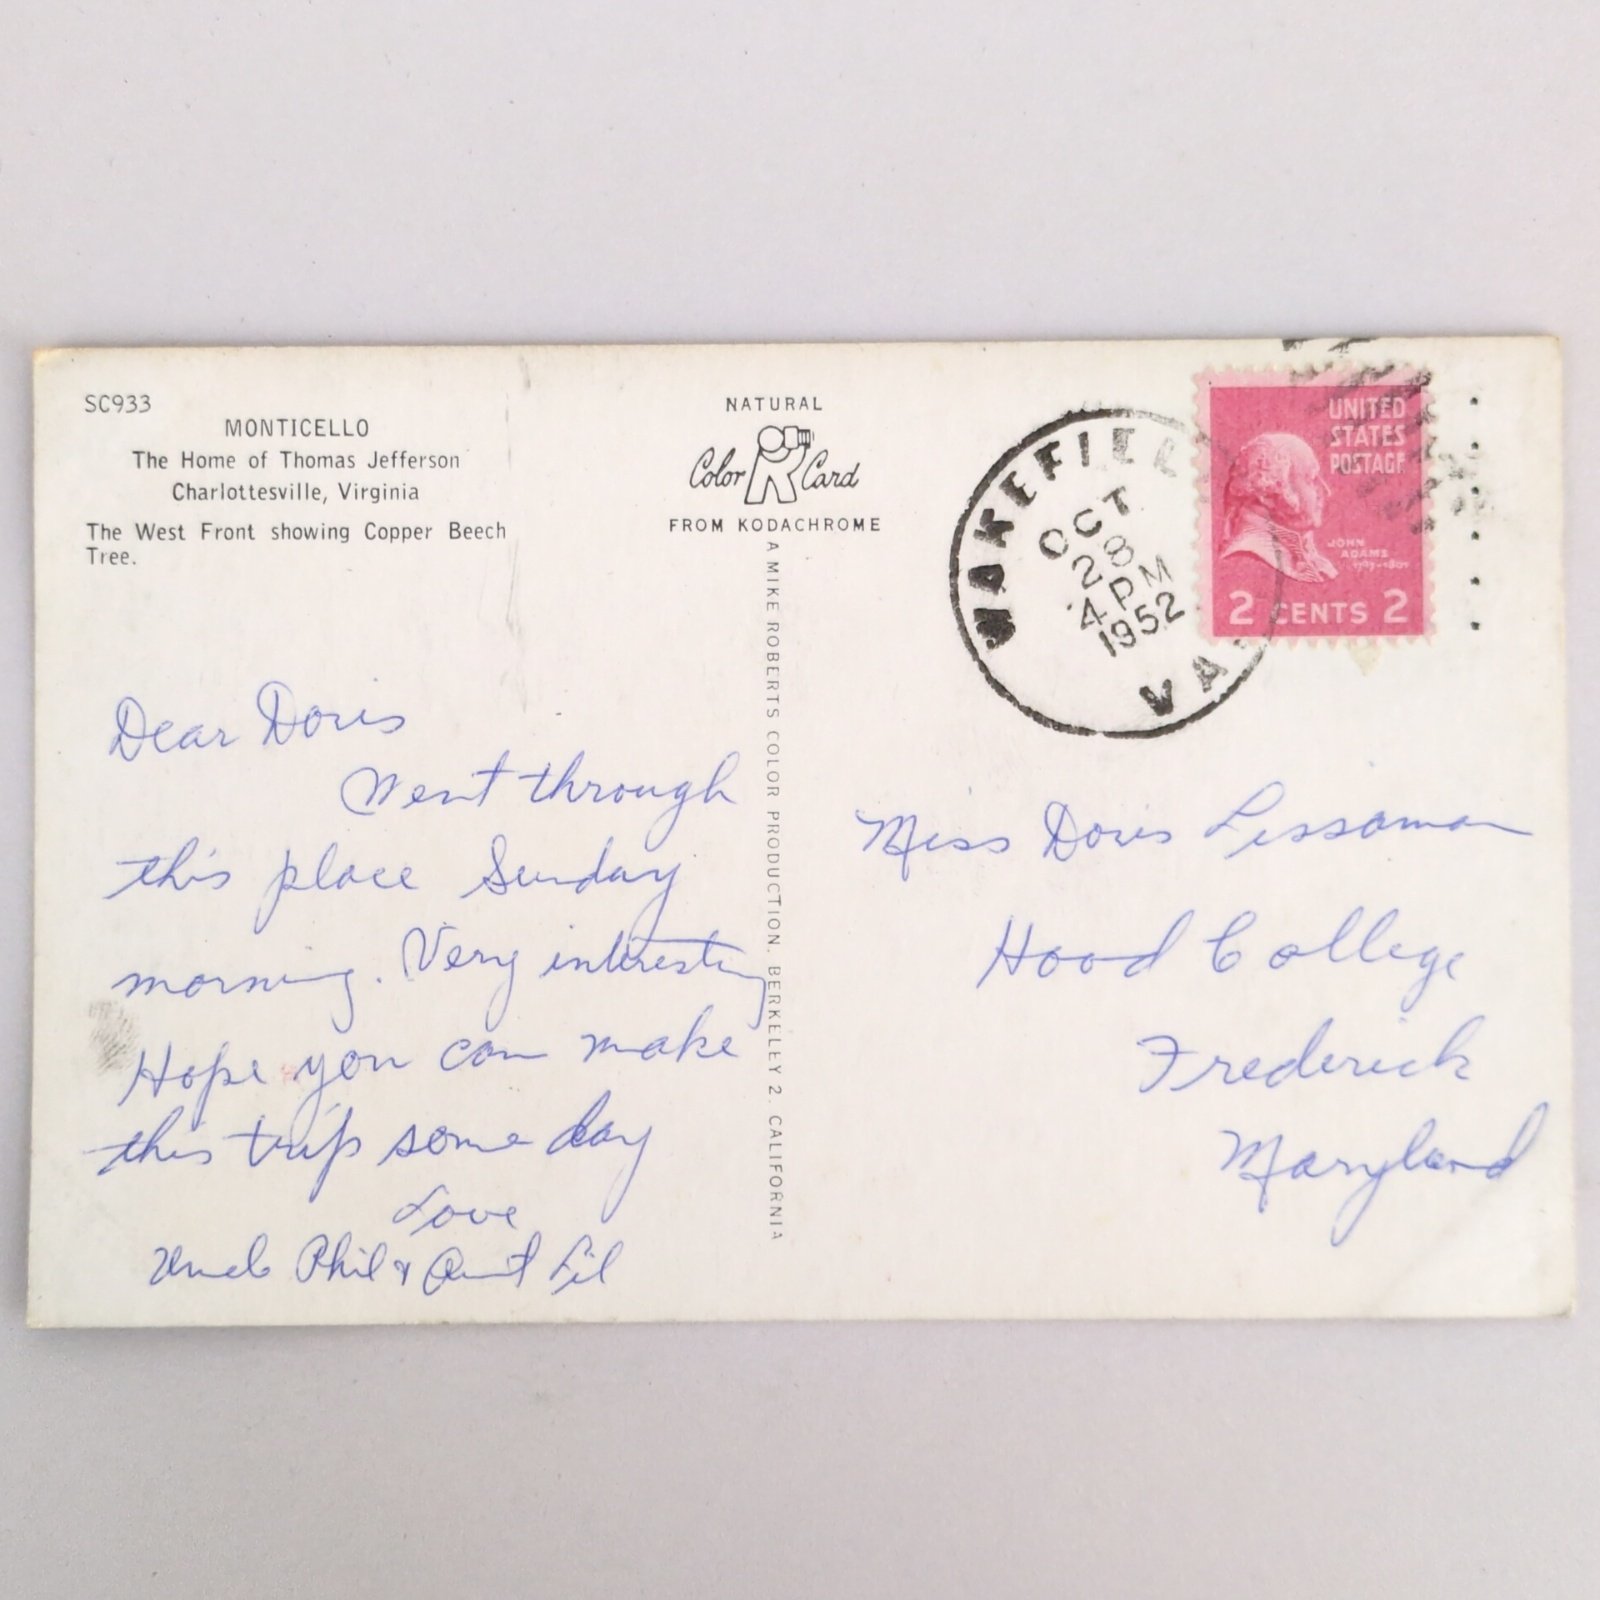 SC933
MONTICELLO
The Home of Thomas Jefferson
Charlottesville, Virginia
The West Front showing Copper Beech
Tree.
NATURAL
Color Card
FROM KODACHROME
A MIKE ROBERTS COLOR PRODUCTION. BERKELEY 2. CALIFORNIA
WAKEFIEL
OCT
28
4 PM
1952
VA.
UNITED
STATES
POSTAGE
JOHN
ADAMS
1797-1801
2 CENTS 2
Dear Doris
Went through
this place Sunday
morning. Very interesting
Hope you can make
this trip some day
Love
Uncle Phil & Aunt Lil
Miss Doris Lissaman
Hood College
Frederick
Maryland